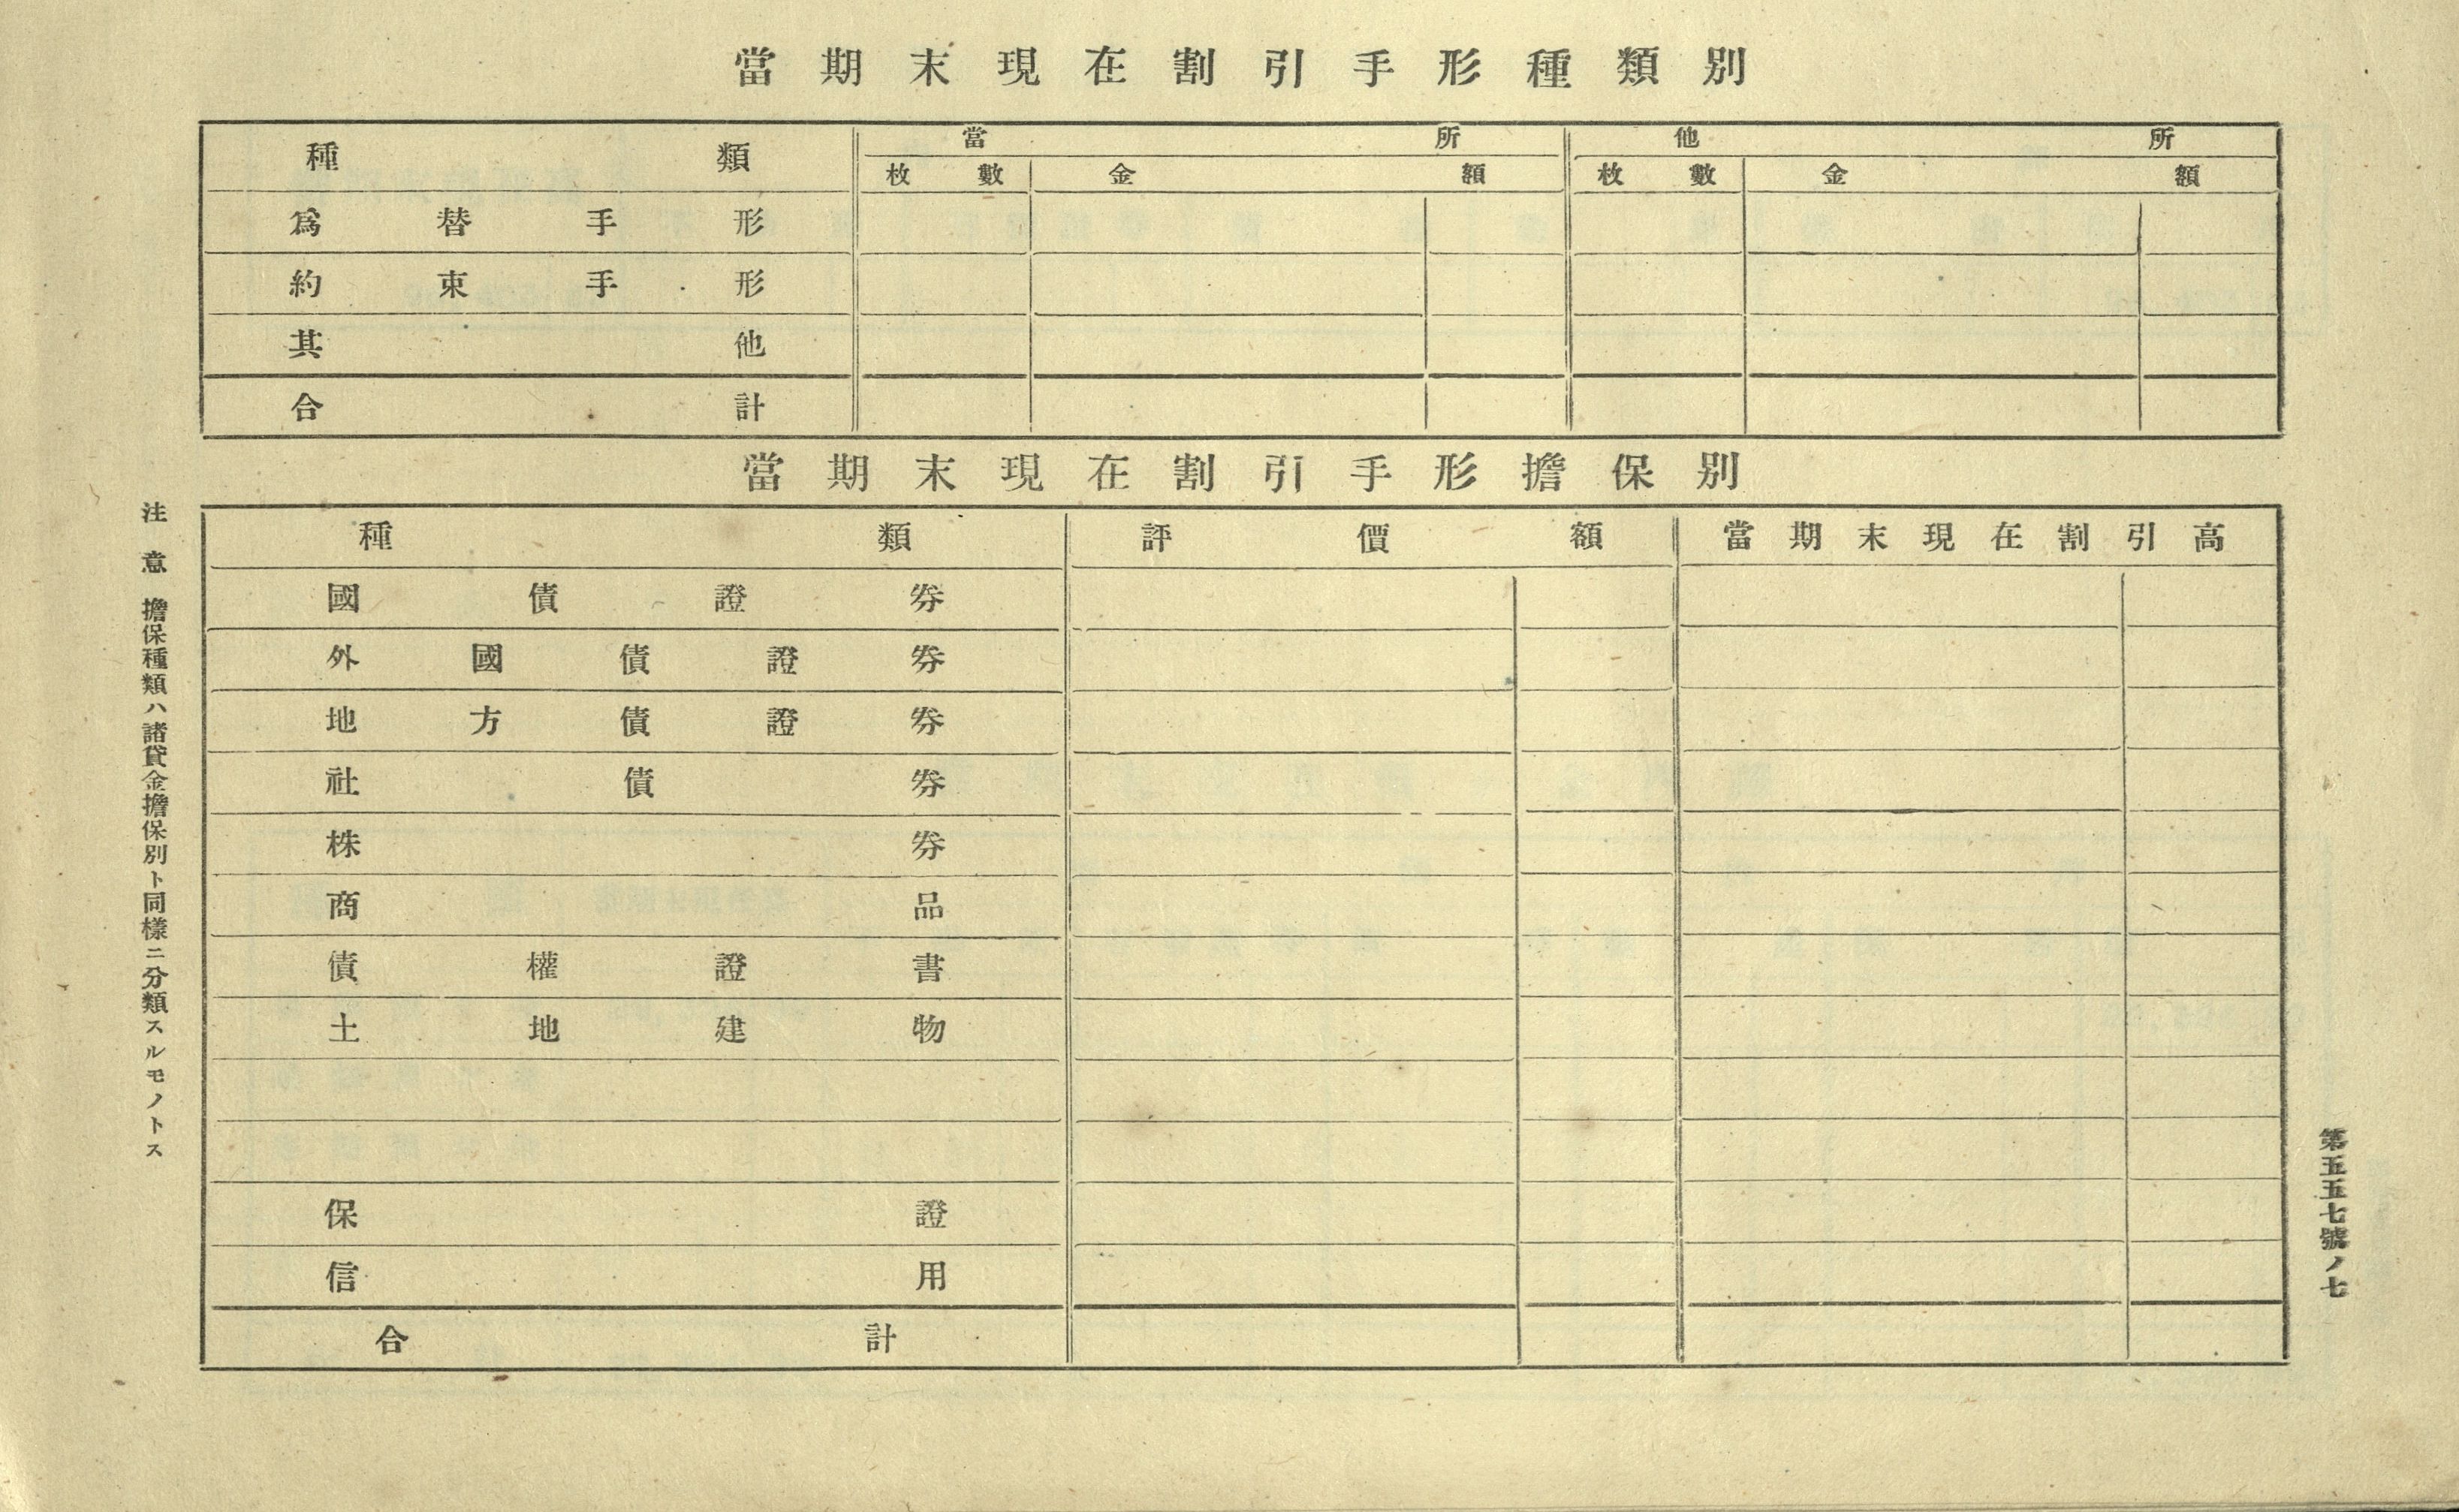 當期末現在割引手形種類別
種類 當所 他所
枚數 金額 枚數 金額
爲替手形
約束手形
其他
合計
當期末現在割引手形擔保別
種類 評價額 當期末現在割引高
國債證券
外國債證券
地方債證券
社債券
株券
商品
債權證書
土地建物
保證
信用
合計
注意 擔保種類ハ諸貸金擔保別ト同樣ニ分類スルモノトス
第五五七號ノ七